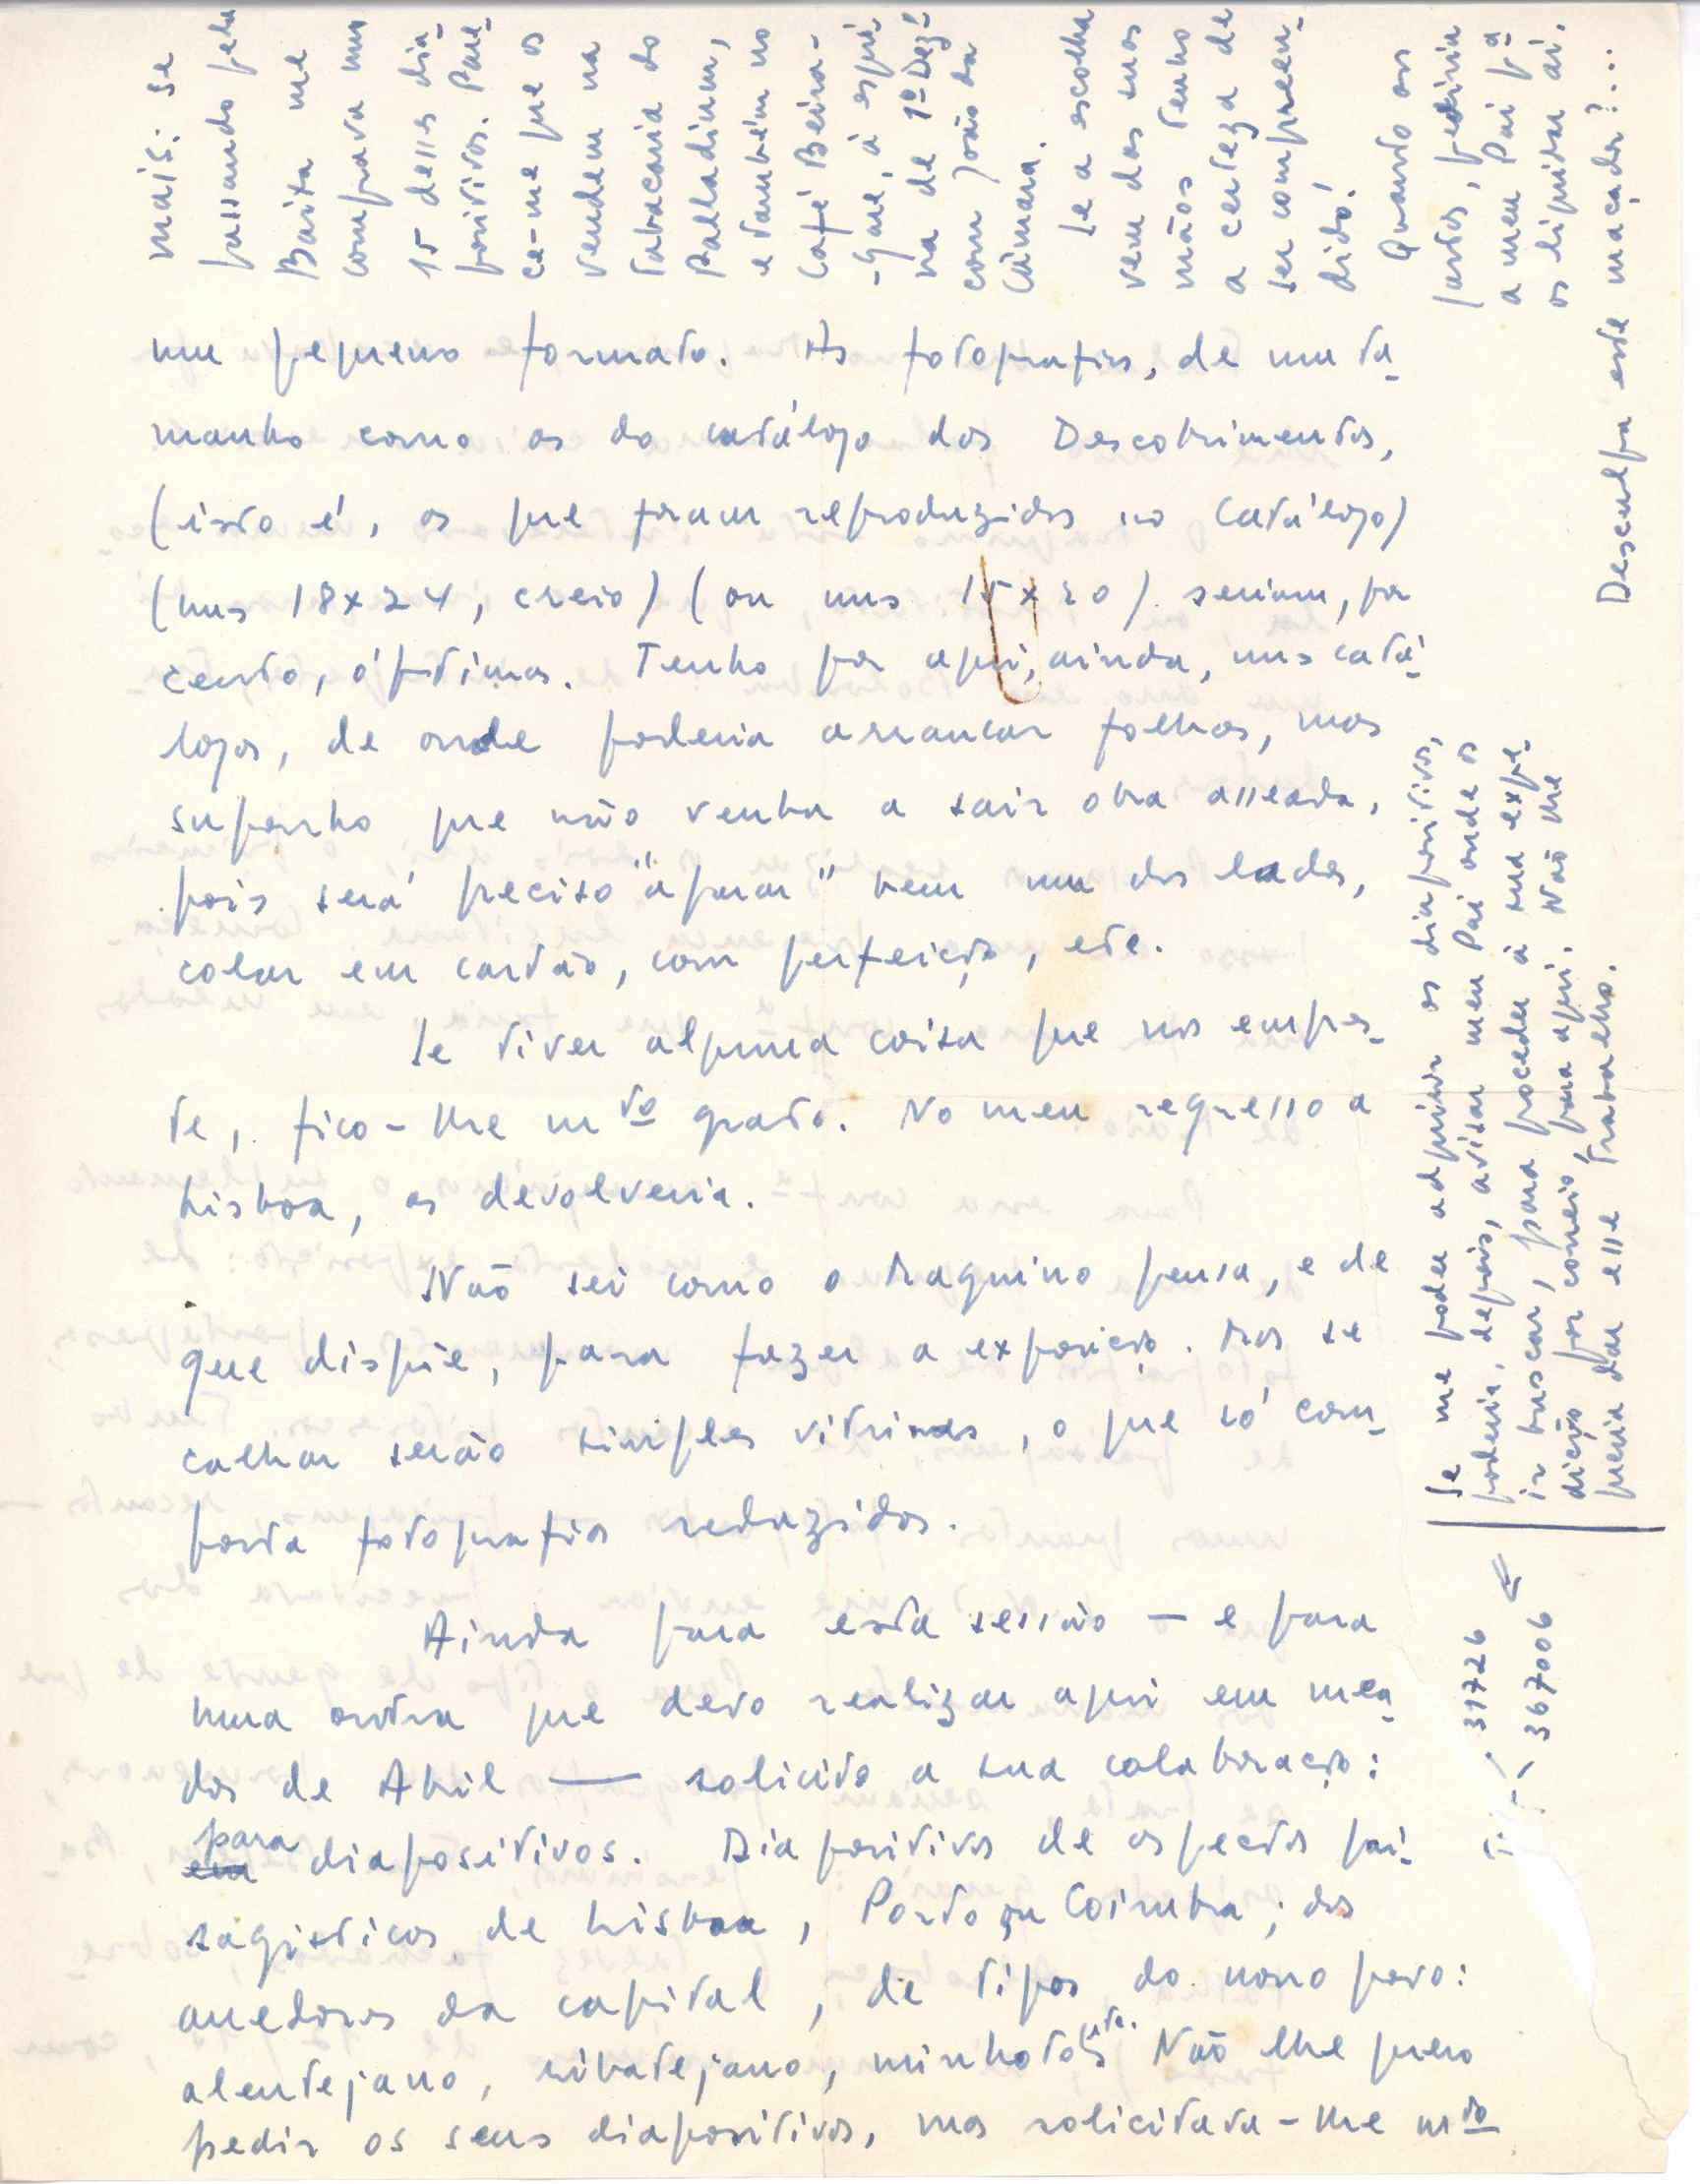 num pequeno formato. As fotografias, de um ta-
manho como as do catálogo dos Descobrimentos,
(isto é, as que foram reproduzidas no Catálogo)
(uns 18x24, creio) (ou uns 15x20) seriam, por
certo, óptimas. Tenho por aqui, ainda, uns catá-
logos, de onde poderia arrancar folhas, mas
suponho que não venha a sair obra asseada,
pois será preciso "aparar" bem um dos lados,
colar em cartão, com perfeição, etc.
Se tiver alguma coisa que nos empres-
te, fico-lhe mto grato. No meu regresso a
Lisboa, as devolveria.
Não sei como o Maquino pensa, e de
que dispõe, para fazer a exposição. Mas se
calhar serão simples vitrines, o que só com-
porta fotografias reduzidas.
Ainda para esta sessão — e para
uma outra que devo realizar aqui em mea-
dos de Abril — solicito a sua colaboração:
para diapositivos. Diapositivos de aspectos pai-
sagísticos de Lisboa, Porto ou Coimbra; dos
arredores da capital, de tipos do nosso povo:
alentejano, ribatejano, minhotos etc. Não lhe quero
pedir os seus diapositivos, mas solicitava-lhe mto
mais: se
passando pela
Baixa me
comprava uns
15 desses dia-
positivos. Pare-
ce-me que os
vendem na
tabacaria do
Palladium,
e também no
Café Beira-
-Gare, à esqui-
na de 1º Dezº
com João da
Câmara.
Se a escolha
vem das suas
mãos tenho
a certeza de
ser compreen-
dido!
Quanto aos
custos, pediria
a meu Pai pª
os liquidar aí.
Desculpa este maçador?...
Se me puder adquirir os diapositivos,
poderia, depois, avisar meu Pai onde os
ir buscar, para proceder à sua expe-
dição por correio, para aqui. Não lhe
queria dar esse trabalho.
31726
367006